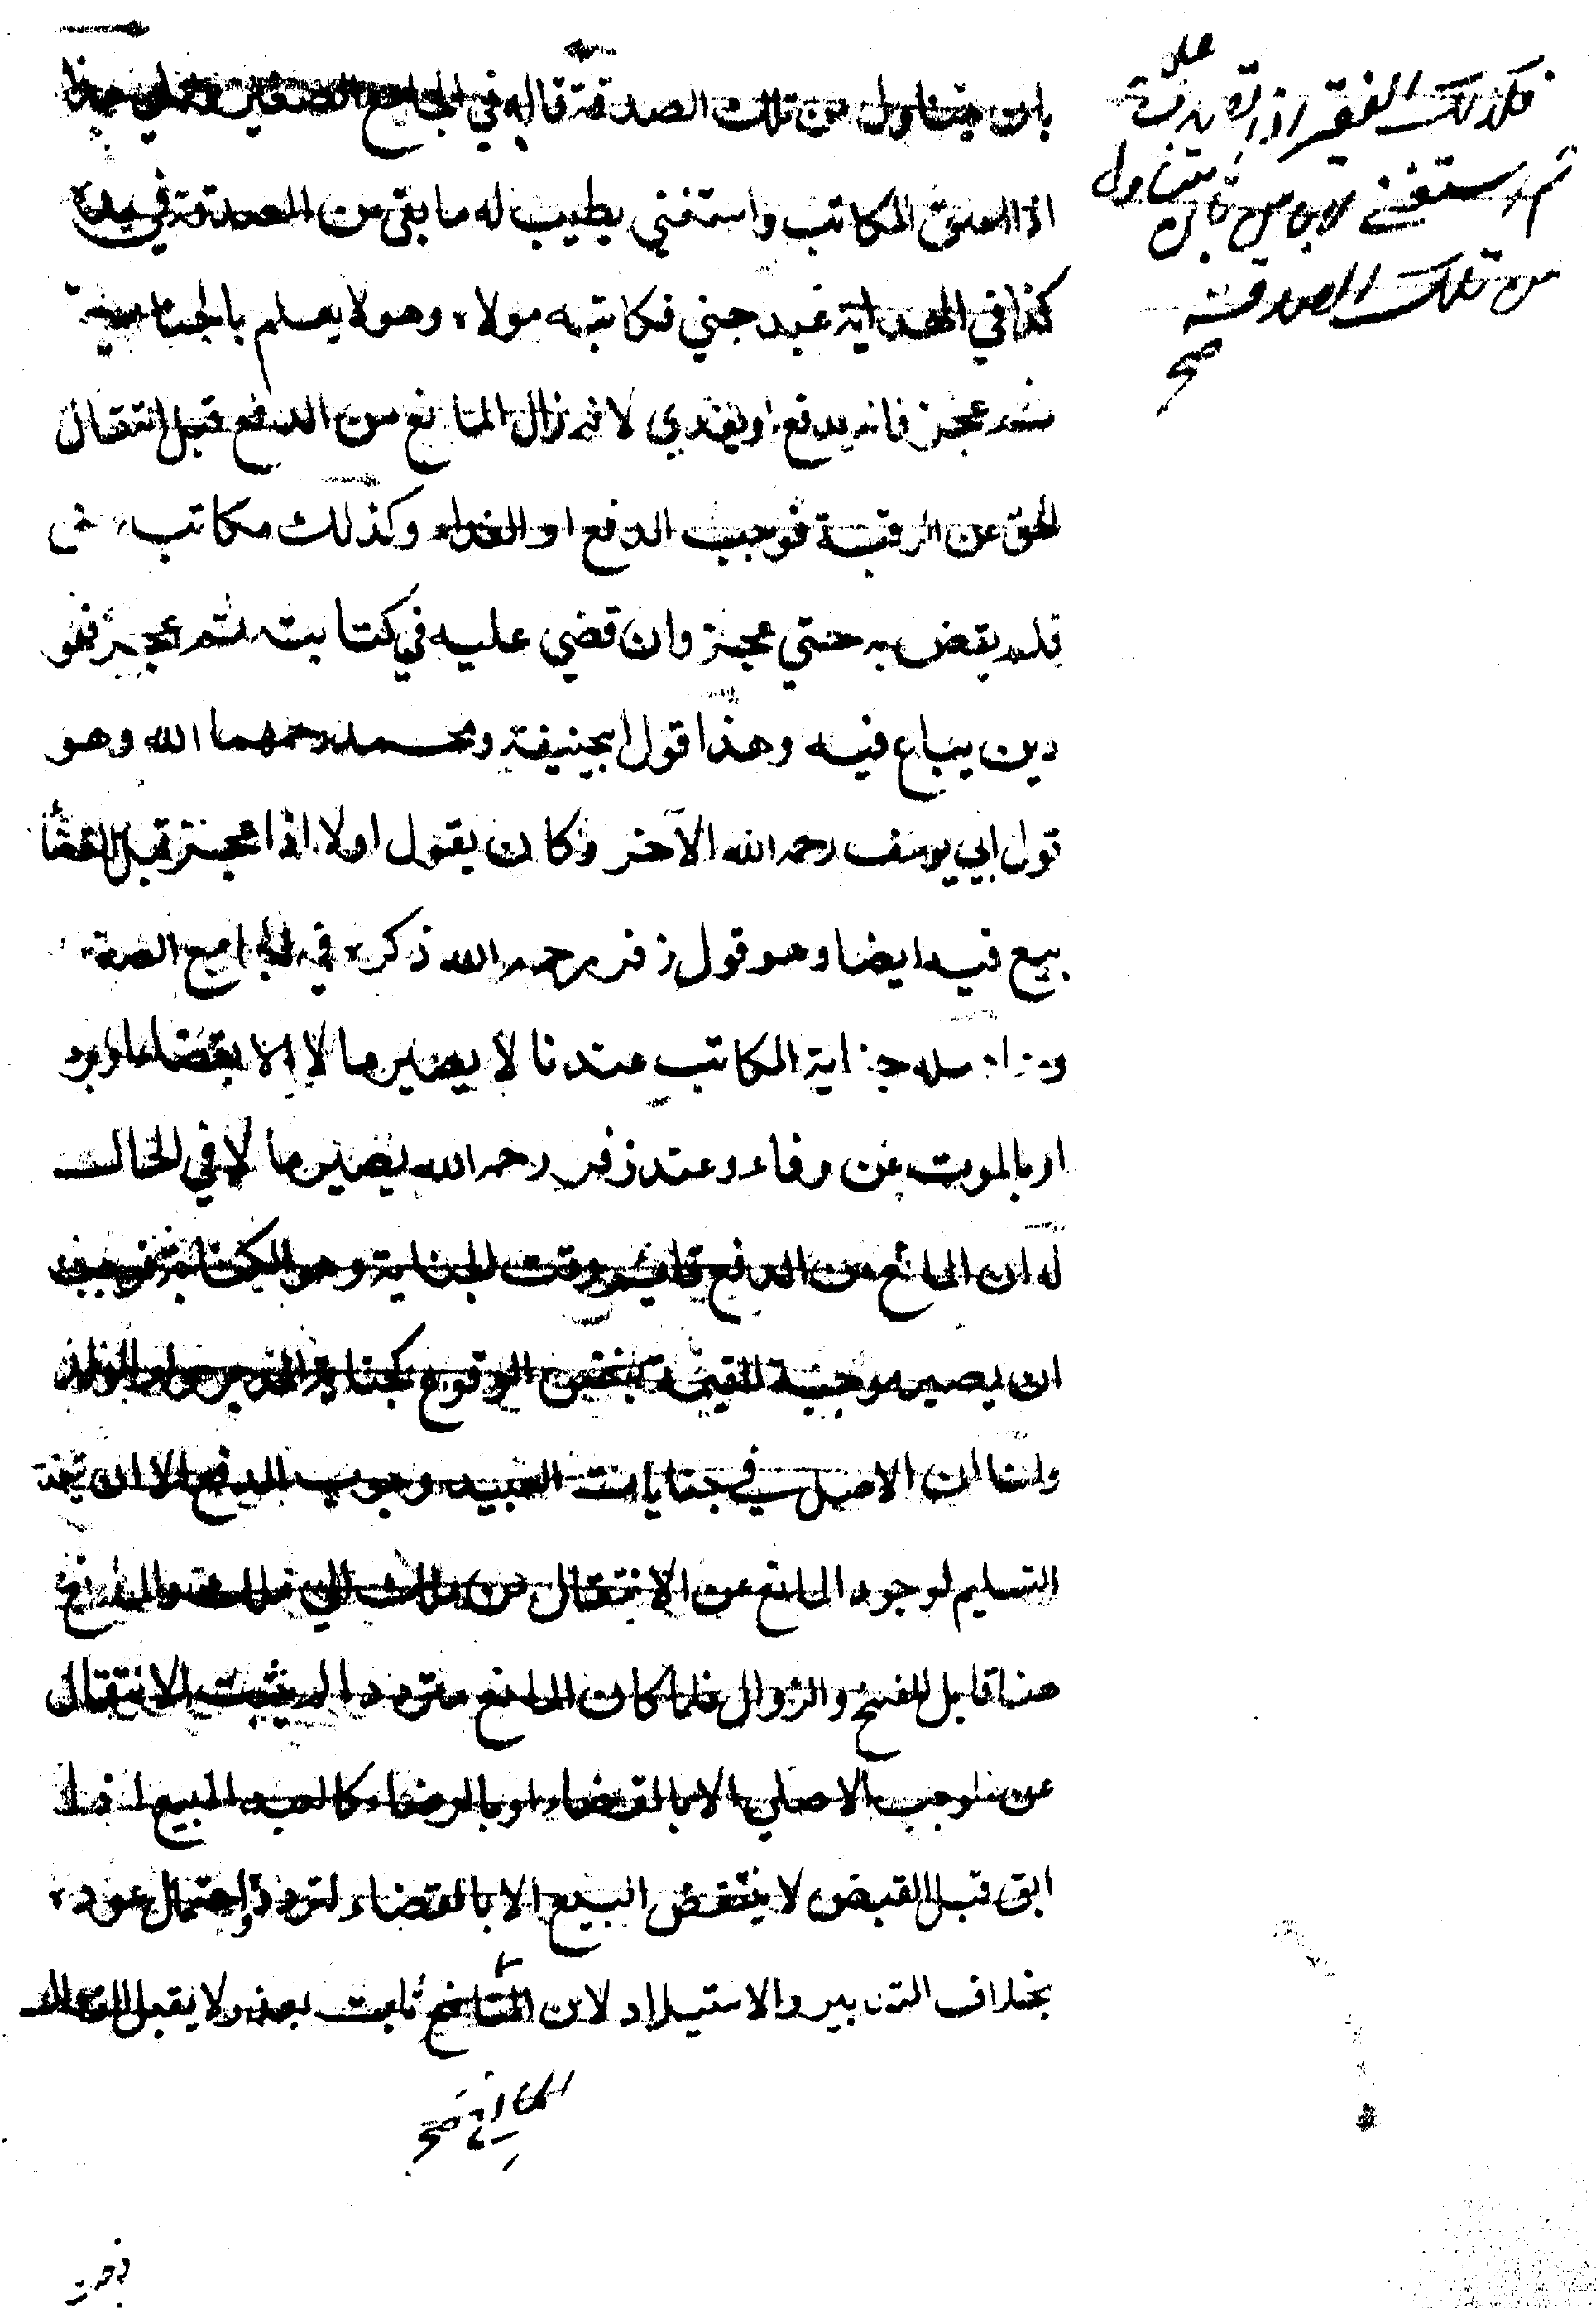 بان يتناول من تلك الصدقة قاله في الجامع الصغير وعلي هذا
اذا اعتق المكاتب واستغني يطيب له ما بقي من الصدقة في يده
كذا في الهداية عبد جني فكاتبه مولاه وهو لا يعلم بالجناية
ثم عجز فانه يدفع او يفدي لانه زال المانع من الدفع قبل انتقال
الحق عن الرقبة فوجب الدفع او الفداء وكذلك مكاتب جني
فلم يقض به حتي عجز وان قضي عليه في كتابته ثم عجز فهو
دين يباع فيه وهذا قول ابيحنيفة ومحمد رحمهما الله وهو
قول ابي يوسف رحمه الله الآخر وكان يقول اولا اذا عجز قبل القضا
بيع فيه ايضا وهو قول زفر رحمه الله ذكره في الجامع الصغير
جناية المكاتب عندنا لا يصير مالا الا بقضاء او
او بالموت عن وفاء وعند زفر رحمه الله يصير مالا في الحال
له ان المانع من الدفع قايم وقت الجناية وهو الكتابة فوجب
ان يصير موجبة للقيمة بنفس الوقوع كجناية المدبر وام الولد
ولنا ان الاصل في جنايات العبيد وجوب الدفع الا ان
التسليم لوجود المانع عن الانتقال من ملك الي ملك والمانع
هنا قابل للفسخ والزوال فلما كان المانع مترددا لم يثبت الانتقال
عن الموجب الاصلي الا بالقضاء او بالرضاء كالعبد المبيع اذا
ابق قبل القبض لا ينتقض البيع الا بالقضاء لتردده واحتمال عوده
بخلاف التدبير والاستيلاد لان ثابت لا يقبل الزوال
المانع صح
فكذلك الفقير اذا تصدق عليه
ثم استغني لا باس بان يتناول
من تلك الصدقة
صح